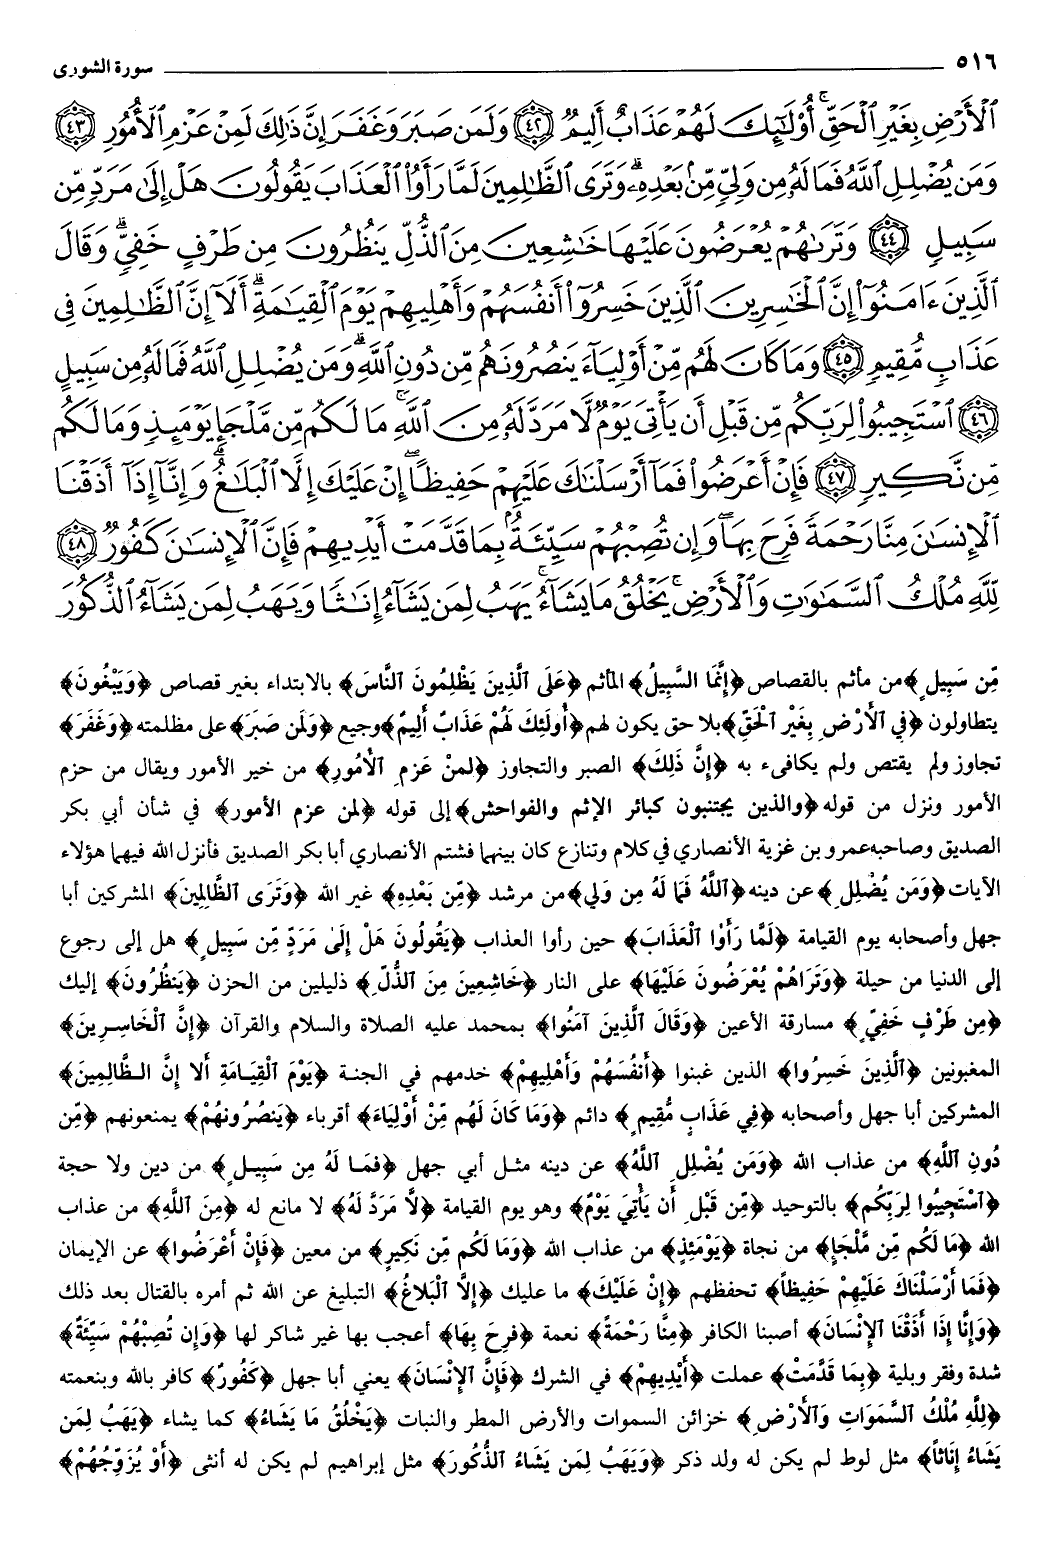 ٥١٦ سورة الشورى
ٱلْأَرْضِ بِغَيْرِ ٱلْحَقِّ أُوْلَٰٓئِكَ لَهُمْ عَذَابٌ أَلِيمٌ ٤٢ وَلَمَن صَبَرَ وَغَفَرَ إِنَّ ذَٰلِكَ لَمِنْ عَزْمِ ٱلْأُمُورِ ٤٣
وَمَن يُضْلِلِ ٱللَّهُ فَمَا لَهُۥ مِن وَلِيٍّ مِّنۢ بَعْدِهِۦ وَتَرَى ٱلظَّٰلِمِينَ لَمَّا رَأَوُاْ ٱلْعَذَابَ يَقُولُونَ هَلْ إِلَىٰ مَرَدٍّ مِّن
سَبِيلٍ ٤٤ وَتَرَىٰهُمْ يُعْرَضُونَ عَلَيْهَا خَٰشِعِينَ مِنَ ٱلذُّلِّ يَنظُرُونَ مِن طَرْفٍ خَفِيٍّ وَقَالَ
ٱلَّذِينَ ءَامَنُوٓاْ إِنَّ ٱلْخَٰسِرِينَ ٱلَّذِينَ خَسِرُوٓاْ أَنفُسَهُمْ وَأَهْلِيهِمْ يَوْمَ ٱلْقِيَٰمَةِ أَلَآ إِنَّ ٱلظَّٰلِمِينَ فِى
عَذَابٍ مُّقِيمٍ ٤٥ وَمَا كَانَ لَهُم مِّنْ أَوْلِيَآءَ يَنصُرُونَهُم مِّن دُونِ ٱللَّهِ وَمَن يُضْلِلِ ٱللَّهُ فَمَا لَهُۥ مِن سَبِيلٍ
٤٦ ٱسْتَجِيبُواْ لِرَبِّكُم مِّن قَبْلِ أَن يَأْتِىَ يَوْمٌ لَّا مَرَدَّ لَهُۥ مِنَ ٱللَّهِ مَا لَكُم مِّن مَّلْجَإٍ يَوْمَئِذٍ وَمَا لَكُم
مِّن نَّكِيرٍ ٤٧ فَإِنْ أَعْرَضُواْ فَمَآ أَرْسَلْنَٰكَ عَلَيْهِمْ حَفِيظًا إِنْ عَلَيْكَ إِلَّا ٱلْبَلَٰغُ وَإِنَّآ إِذَآ أَذَقْنَا
ٱلْإِنسَٰنَ مِنَّا رَحْمَةً فَرِحَ بِهَا وَإِن تُصِبْهُمْ سَيِّئَةٌۢ بِمَا قَدَّمَتْ أَيْدِيهِمْ فَإِنَّ ٱلْإِنسَٰنَ كَفُورٌ ٤٨
لِّلَّهِ مُلْكُ ٱلسَّمَٰوَٰتِ وَٱلْأَرْضِ يَخْلُقُ مَا يَشَآءُ يَهَبُ لِمَن يَشَآءُ إِنَٰثًا وَيَهَبُ لِمَن يَشَآءُ ٱلذُّكُورَ
مِّن سَبِيلٍ﴾ من مأثم بالقصاص ﴿إِنَّمَا السَّبِيلُ﴾ المأثم ﴿عَلَى ٱلَّذِينَ يَظْلِمُونَ ٱلنَّاسَ﴾ بالابتداء بغير قصاص ﴿وَيَبْغُونَ﴾
يتطاولون ﴿فِي ٱلأَرْضِ بِغَيْرِ ٱلْحَقِّ﴾ بلا حق يكون لهم ﴿أُولَئِكَ لَهُمْ عَذَابٌ أَلِيمٌ﴾ وجيع ﴿وَلَمَن صَبَرَ﴾ على مظلمته ﴿وَغَفَرَ﴾
تجاوز ولم يقتص ولم يكافىء به ﴿إِنَّ ذَلِكَ﴾ الصبر والتجاوز ﴿لَمِنْ عَزمِ ٱلأُمُورِ﴾ من خير الأمور ويقال من حزم
الأمور ونزل من قوله ﴿والذين يجتنبون كبائر الإثم والفواحش﴾ إلى قوله ﴿لمن عزم الأمور﴾ في شأن أبي بكر
الصديق وصاحبه عمرو بن غزية الأنصاري في كلام وتنازع كان بينهما فشتم الأنصاري أبا بكر الصديق فأنزل الله فيهما هؤلاء
الآيات ﴿وَمَن يُضْلِلِ﴾ عن دينه ﴿ٱللَّهُ فَمَا لَهُ مِن وَلِي﴾ من مرشد ﴿مِّن بَعْدِهِ﴾ غير الله ﴿وَتَرَى ٱلظَّالِمِينَ﴾ المشركين أبا
جهل وأصحابه يوم القيامة ﴿لَمَّا رَأَوُا ٱلْعَذَابَ﴾ حين رأوا العذاب ﴿يَقُولُونَ هَلْ إِلَىٰ مَرَدٍّ مِّن سَبِيلٍ﴾ هل إلى رجوع
إلى الدنيا من حيلة ﴿وَتَرَاهُمْ يُعْرَضُونَ عَلَيْهَا﴾ على النار ﴿خَاشِعِينَ مِنَ ٱلذُّلِّ﴾ ذليلين من الحزن ﴿يَنظُرُونَ﴾ إليك
﴿مِن طَرْفٍ خَفِيٍّ﴾ مسارقة الأعين ﴿وَقَالَ ٱلَّذِينَ آمَنُوا﴾ بمحمد عليه الصلاة والسلام والقرآن ﴿إِنَّ ٱلْخَاسِرِينَ﴾
المغبونين ﴿ٱلَّذِينَ خَسِرُوا﴾ الذين غبنوا ﴿أَنفُسَهُمْ وَأَهْلِيهِمْ﴾ خدمهم في الجنة ﴿يَوْمَ ٱلْقِيَامَةِ أَلا إِنَّ ٱلظَّالِمِينَ﴾
المشركين أبا جهل وأصحابه ﴿فِي عَذَابٍ مُّقِيمٍ﴾ دائم ﴿وَمَا كَانَ لَهُم مِّنْ أَوْلِيَاءَ﴾ أقرباء ﴿يَنصُرُونهُمْ﴾ يمنعونهم ﴿مِّن
دُونِ ٱللَّهِ﴾ من عذاب الله ﴿وَمَن يُضْلِلِ ٱللَّهُ﴾ عن دينه مثل أبي جهل ﴿فَمَا لَهُ مِن سَبِيلٍ﴾ من دين ولا حجة
﴿ٱسْتَجِيبُوا لِرَبِّكُم﴾ بالتوحيد ﴿مِّن قَبْلِ أَن يَأْتِيَ يَوْمٌ﴾ وهو يوم القيامة ﴿لَّا مَرَدَّ لَهُ﴾ لا مانع له ﴿مِنَ ٱللَّهِ﴾ من عذاب
الله ﴿مَا لَكُم مِّن مَّلْجَإٍ﴾ من نجاة ﴿يَوْمَئِذٍ﴾ من عذاب الله ﴿وَمَا لَكُم مِّن نَكِيرٍ﴾ من معين ﴿فَإِنْ أَعْرَضُوا﴾ عن الإيمان
﴿فَمَا أَرْسَلْنَاكَ عَلَيْهِمْ حَفِيظاً﴾ تحفظهم ﴿إِنْ عَلَيْكَ﴾ ما عليك ﴿إِلَّا ٱلْبَلاغُ﴾ التبليغ عن الله ثم أمره بالقتال بعد ذلك
﴿وَإِنَّا إِذَا أَذَقْنَا ٱلإِنْسَانَ﴾ أصبنا الكافر ﴿مِنَّا رَحْمَةً﴾ نعمة ﴿فَرِحَ بِهَا﴾ أعجب بها غير شاكر لها ﴿وَإِن تُصِبْهُمْ سَيِّئَةٌ﴾
شدة وفقر وبلية ﴿بِمَا قَدَّمَتْ﴾ عملت ﴿أَيْدِيهِمْ﴾ في الشرك ﴿فَإِنَّ ٱلإِنْسَانَ﴾ يعني أبا جهل ﴿كَفُورٌ﴾ كافر بالله وبنعمته
﴿لِلَّهِ مُلْكُ ٱلسَّمَوَاتِ وَٱلأَرْضِ﴾ خزائن السموات والأرض المطر والنبات ﴿يَخْلُقُ مَا يَشَاءُ﴾ كما يشاء ﴿يَهَبُ لِمَن
يَشَاءُ إِنَاثاً﴾ مثل لوط لم يكن له ولد ذكر ﴿وَيَهَبُ لِمَن يَشَاءُ ٱلذُّكُورَ﴾ مثل إبراهيم لم يكن له أنثى ﴿أَوْ يُزَوِّجُهُمْ﴾